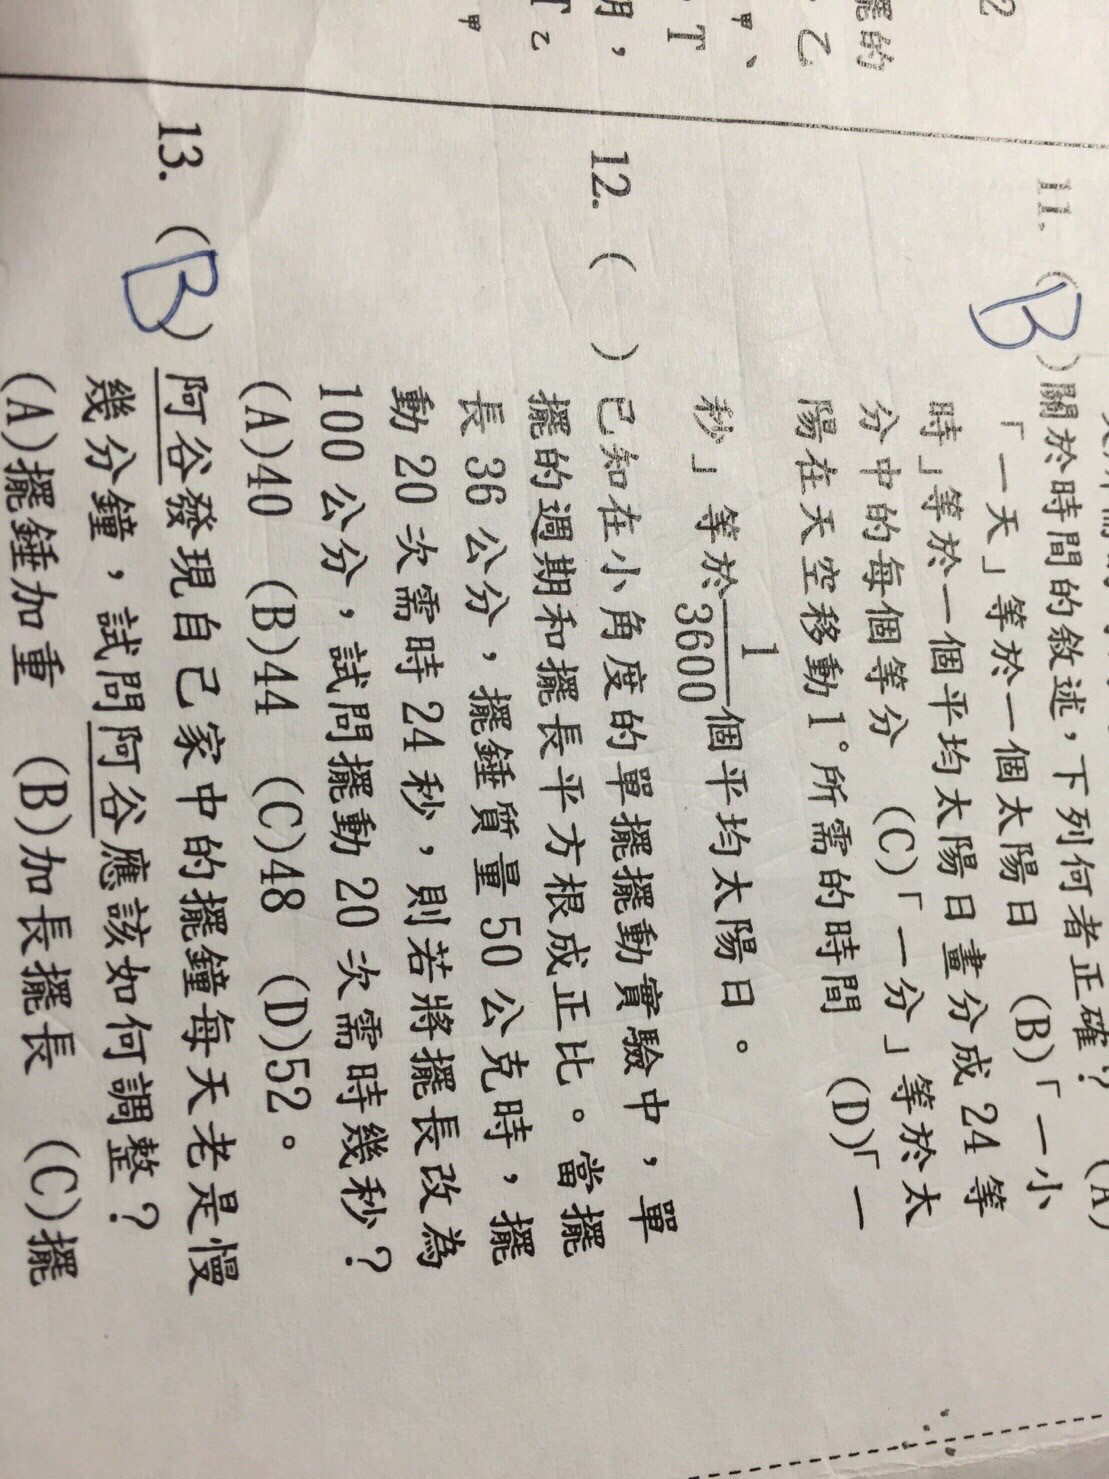 11. (B)關於時間的敘述，下列何者正確？ (A)
「一天」等於一個太陽日 (B)「一小
時」等於一個平均太陽日畫分成 24 等
分中的每個等分 (C)「一分」等於太
陽在天空移動 1°所需的時間 (D)「一
秒」等於1/3600個平均太陽日。
12. ( )已知在小角度的單擺擺動實驗中，單
擺的週期和擺長平方根成正比。當擺
長 36 公分，擺錘質量 50 公克時，擺
動 20 次需時 24 秒，則若將擺長改為
100 公分，試問擺動 20 次需時幾秒？
(A)40 (B)44 (C)48 (D)52。
13. (B)阿谷發現自己家中的擺鐘每天老是慢
幾分鐘，試問阿谷應該如何調整？
(A)擺錘加重 (B)加長擺長 (C)擺